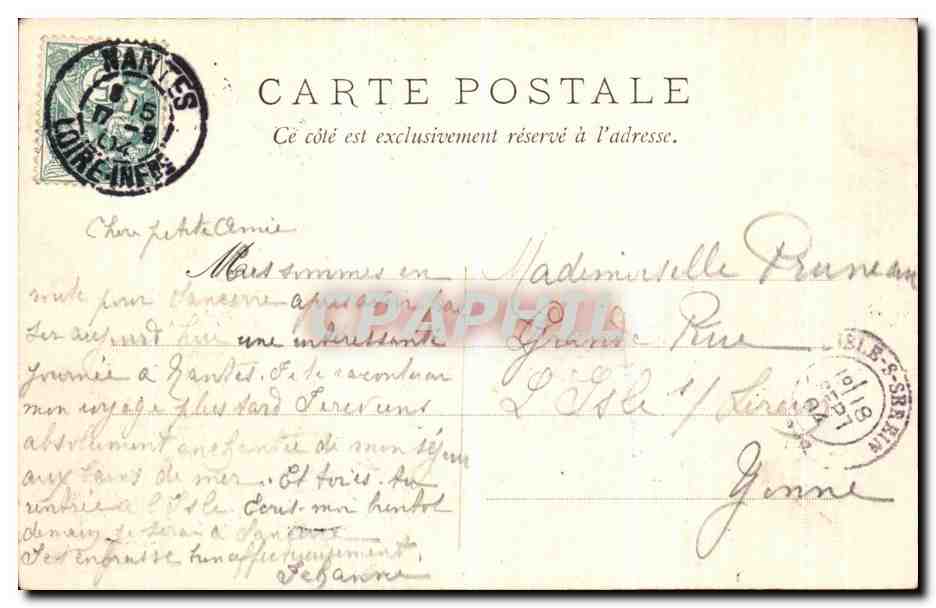 NANTES
8 15
17 - 9
04
LOIRE-INFRE
CARTE POSTALE
Ce côté est exclusivement réservé à l'adresse.
Chère petite Amie
Nous sommes en
route pour Sancerre après avoir pas
ser aujourd'hui une intéressante
journée à Nantes. Je te raconterai
mon voyage plus tard Je reviens
absolument enchantée de mon séjour
aux bains de mer. Et toi es-tu
rentrée à l'Isle. Ecris-moi bientôt
demain je serai à Sancerre
Je t'embrasse bien affectueusement.
Jehanne
Mademoiselle Pruneau
Grande Rue
L'Isle s/ Serein
Yonne
ISLE-S-SEREIN
18
SEPT
04
CPAPHIL